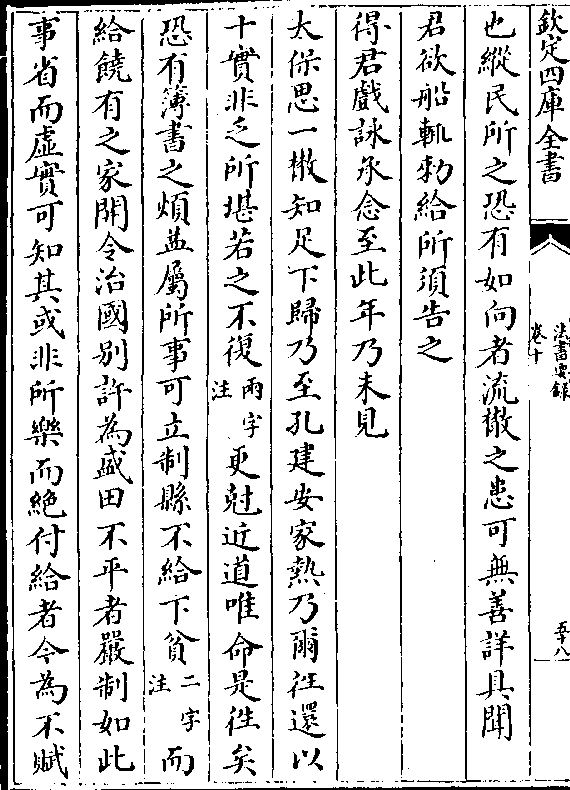 欽定四庫全書
法書要録
卷十
五十八
也縱民所之恐有如向者流散之患可無善詳具聞
君欲船輒勑給所須告之
得君戲詠承念至此年乃未見
太保思一散知足下歸乃至孔建安家熱乃爾往還以
十實非乏所堪若之不復兩字注更尅近道唯命是往矣
恐有簿書之煩並屬所事可立制縣不給下貧二字注而
給饒有之家開令治國别許為盛田不平者嚴制如此
事省而虚實可知其或非所樂而絶付給者令為不賦